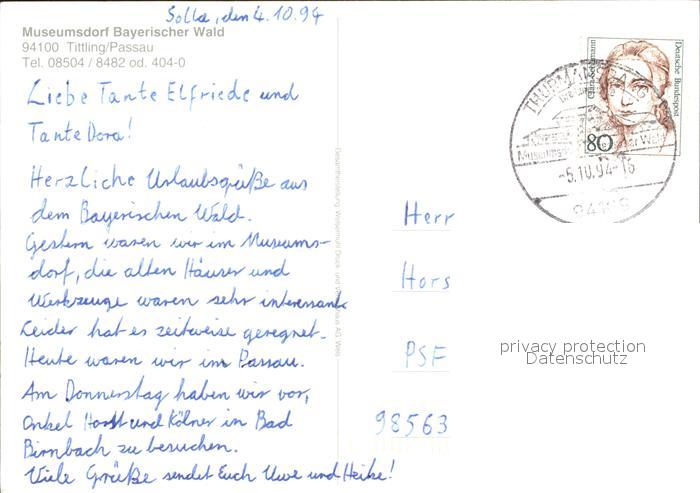 Solla, den 4.10.94
Museumsdorf Bayerischer Wald
94100 Tittling/Passau
Tel. 08504 / 8482 od. 404-0
Liebe Tante Elfriede und
Tante Dora!
Herzliche Urlaubsgrüße aus
dem Bayerischen Wald.
Gestern waren wir im Museums-
dorf, die alten Häuser und
Werkzeuge waren sehr interessant
Leider hat es zeitweise geregnet.
Heute waren wir im Passau.
Am Donnerstag haben wir vor,
Onkel Horst und Kölner in Bad
Birnbach zu besuchen.
Viele Grüße sendet Euch Uwe und Heike!
Herr
Hors
PSF
98563
Deutsche Bundespost
80
THURMANSBANG
-5.10.94-16
94169
privacy protection
Datenschutz